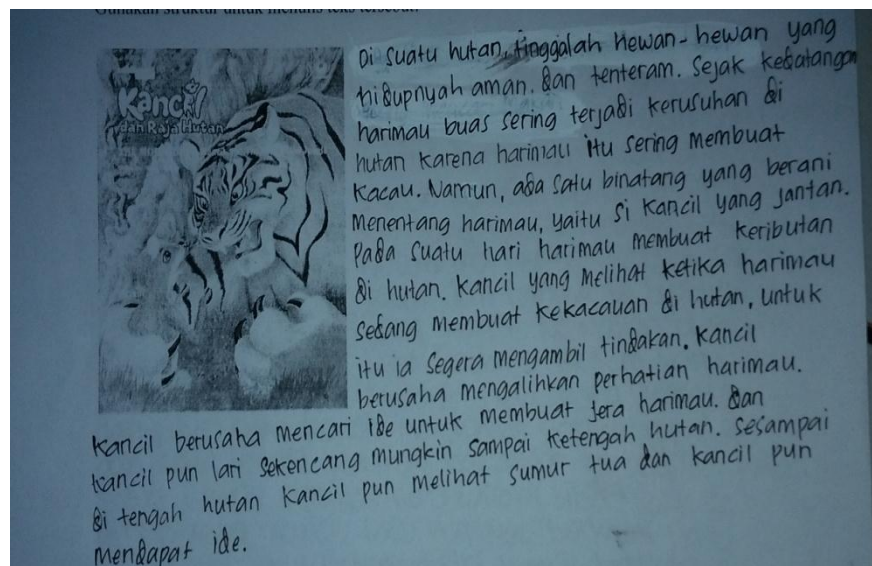 Gunakan struktur untuk menulis teks tersebut.
Kancil
dan Raja Hutan
Di suatu hutan, tinggalah hewan-hewan yang
hidupnyah aman. dan tenteram. Sejak kedatangan
harimau buas sering terjadi kerusuhan di
hutan karena harimau itu sering membuat
kacau. Namun, ada satu binatang yang berani
menentang harimau, yaitu si kancil yang jantan.
Pada suatu hari harimau membuat keributan
di hutan. kancil yang melihat ketika harimau
sedang membuat kekacauan di hutan, untuk
itu ia segera mengambil tindakan. kancil
berusaha mengalihkan perhatian harimau.
kancil berusaha mencari ide untuk membuat jera harimau. dan
kancil pun lari sekencang mungkin sampai ketengah hutan. sesampai
di tengah hutan kancil pun melihat sumur tua dan kancil pun
mendapat ide.